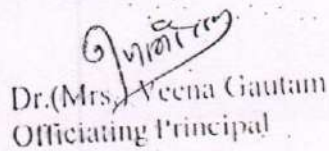 Dr.(Mrs.) Veena Gautam
Officiating Principal